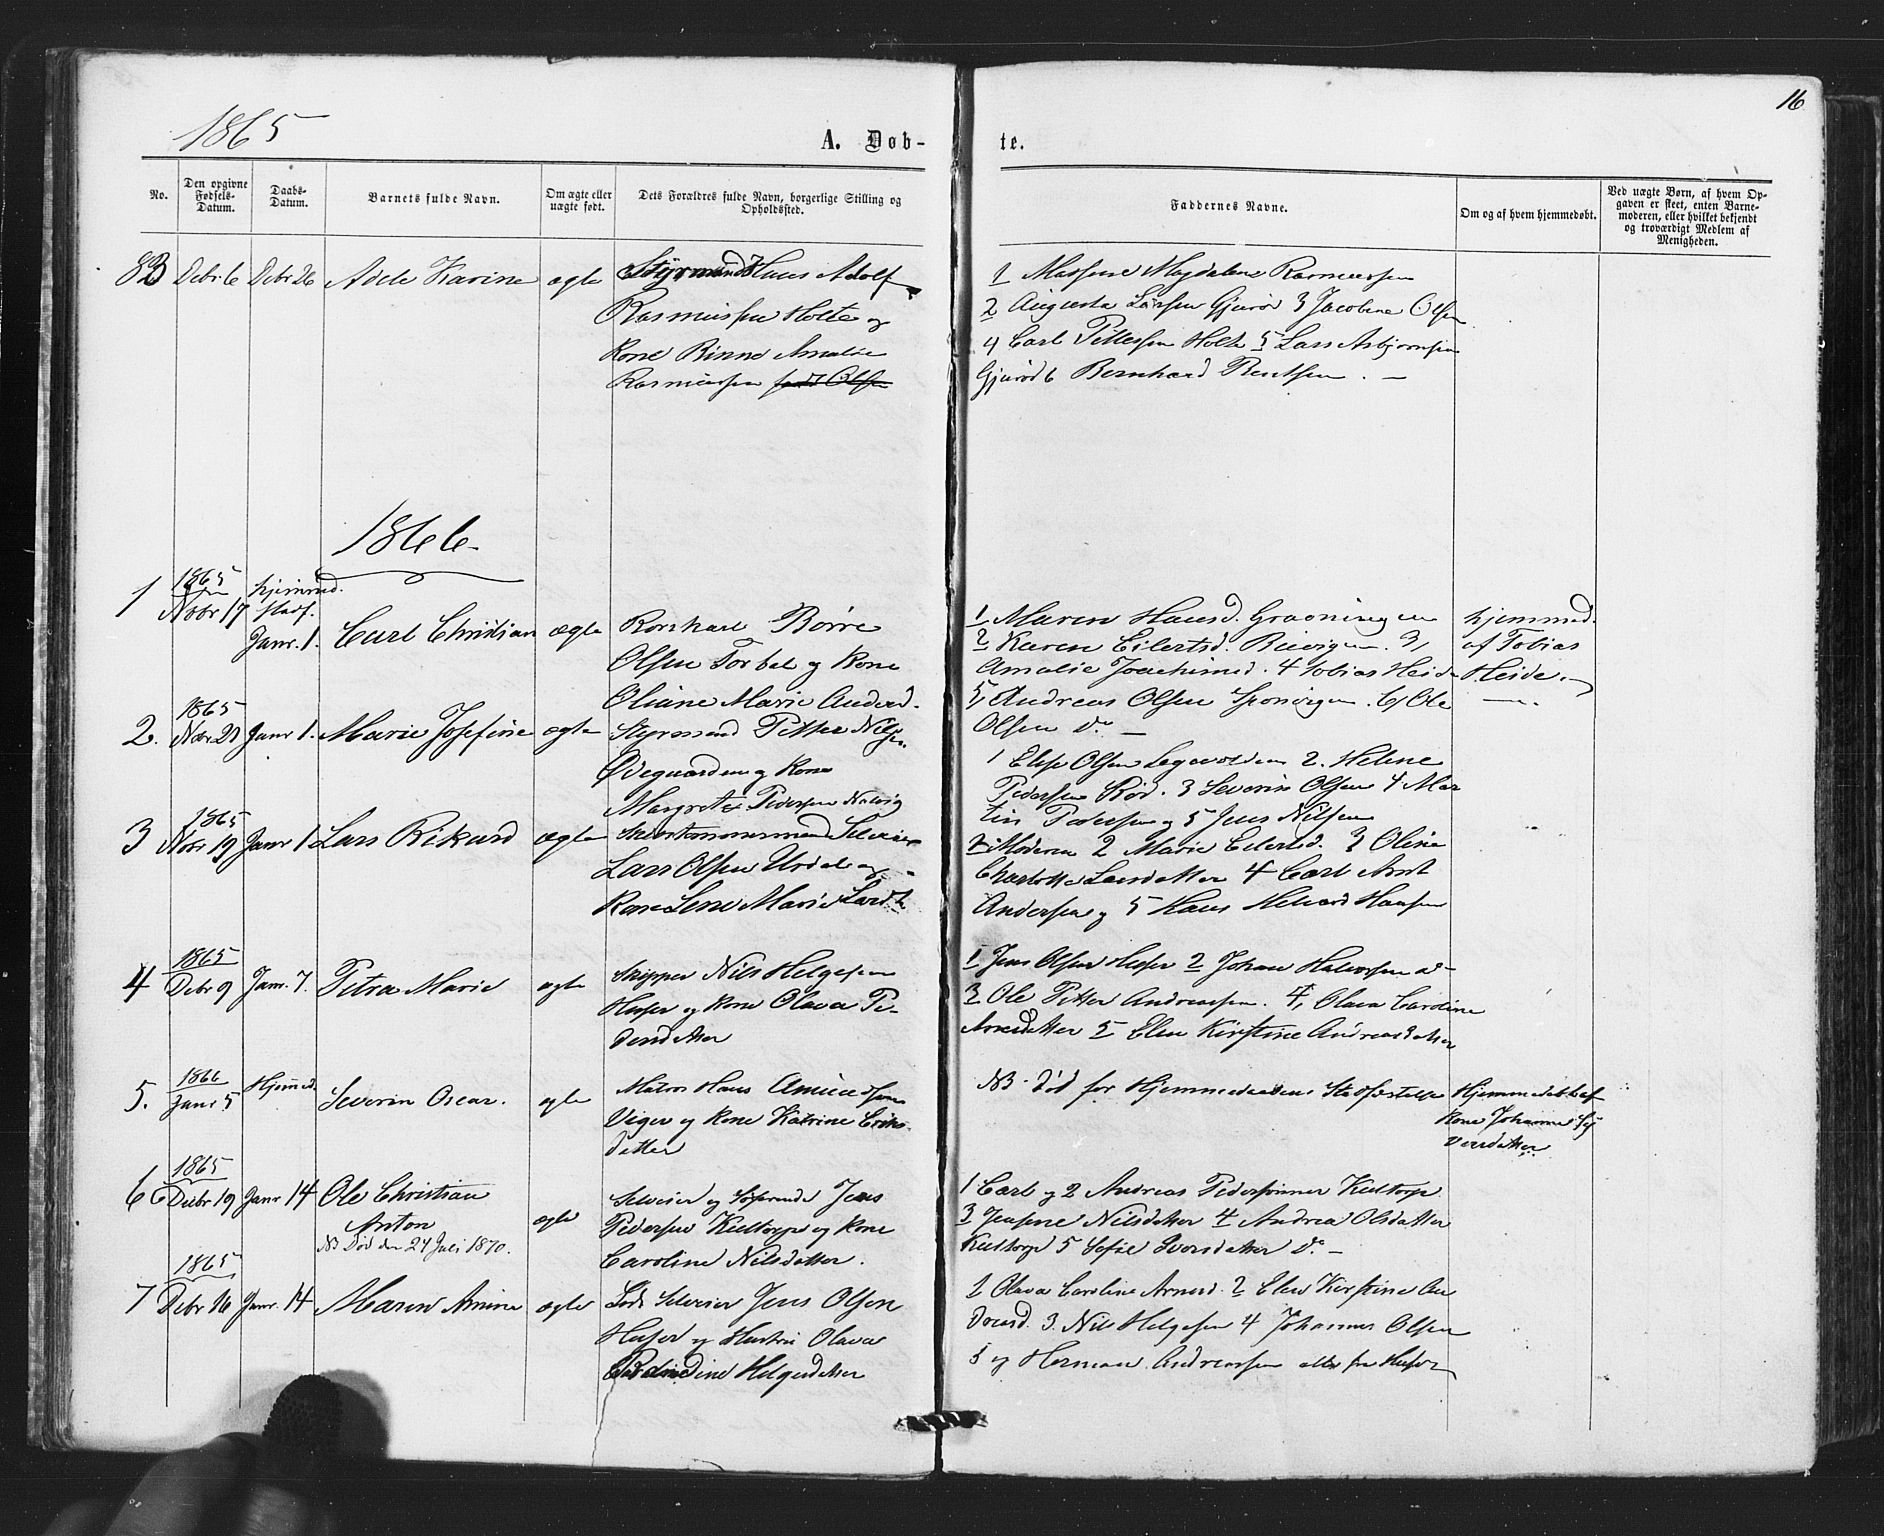 16
1865
A. Døb-
te.
No.
Den opgivne
Fødsels-
Datum.
Daabs-
Datum.
Barnets fulde Navn.
Om ægte eller
uægte født.
Dets Forældres fulde Navn, borgerlige Stilling og
Opholdssted.
Faddernes Navne.
Om og af hvem hjemmedøbt.
Ved uægte Børn, af hvem Op-
gaven er skeet, enten Barne-
moderen, eller hvilket bekjendt
og troværdigt Medlem af
Menigheden.
83 Debr 6 Debr 26 Adele Karine ægte
Styrmand Hans Adolf
Rasmussen Holte og
Kone Amalie
Rasmussen født Olsen
1 Magdalene Rasmussen
2 Augusta Larsen Gjerød 3 Jacobine Olsen
4 Carl Holte 5 Lars Asbjørnsen
Gjerød 6 Bernhard . —
1866
1 1865
Novbr 17
hjemmed.
stadf.
Janr. 1.
Carl Christian ægte
Børre
Olsen Torbal og Kone
Oliane Marie Andersd.
1 Maren Hansd. Graaningen
2 Karen Eilertsd. 3,
Amalie Joachimsd. 4 Tobias Heide
5, Andreas Olsen 6, Ole
Olsen do —
hjemmed.
af Tobias
Heide
2. 1865
Novbr 21 Janr 1. Marie Josefine ægte
Styrmand Petter Nilsen
Ødegaarden og Kone
Margrete Pedersen Narvig
1 Olsen 2. Helene
Pedersen Rød. 3 Severin Olsen 4 Mar
tin Pedersen og 5 Jens Nilsen
3 1865
Novbr 19 Janr 1 Lars Rikard ægte
Lars Olsen Urdal og
Kone Lene Marie
1 Moderen 2 Marie Eilertsd. 3 Oline
Charlotte Larsdatter 4 Carl
Andersen og 5 Hans Hansen
4 1865
Debr 9 Janr. 7. Petra Marie ægte
Skipper Nils Helgesen
Hesper og Kone Olava Pe-
dersdatter
1 Jens Olsen 2 Johan Halvorsen do
3 Ole Petter Andreassen. 4, Olava Caroline
Arnesdatter 5 Elen Kirstine Andreasdatter
5. 1866
Janr 5 Hjemmed. Severin Oscar. ægte
Matros Hans Amundsen
Viger og Kone Katrine Eriks-
datter
NB. Død før Hjemmedaabens Stadfæstelse
Hjemmedøbt af
Kone Johanne Sy
versdatter
6 1865
Decbr 19 Janr 14 Ole Christian
Anton
NB Død den 24 Juli 1870.
ægte
Selveier og Jens
Pedersen Kultorp og Kone
Caroline Nilsdatter.
1 Carl og 2 Andreas Pedersønner Kultorp
3 Jensine Nilsdatter 4 Andrea Olsdatter
Kultorp 5 Sofie Iversdatter do —
7 1865
Debr 16 Janr. 14 Maren Amine ægte
Lods Selveier Jens Olsen
og Hustru Olava
Helgesdatter
1 Olava Caroline Arnesd. 2 Elen Kirstine An
dreasd. 3. Nils Helgesen 4 Johannes Olsen
5 og Herman Andreassen alle fra